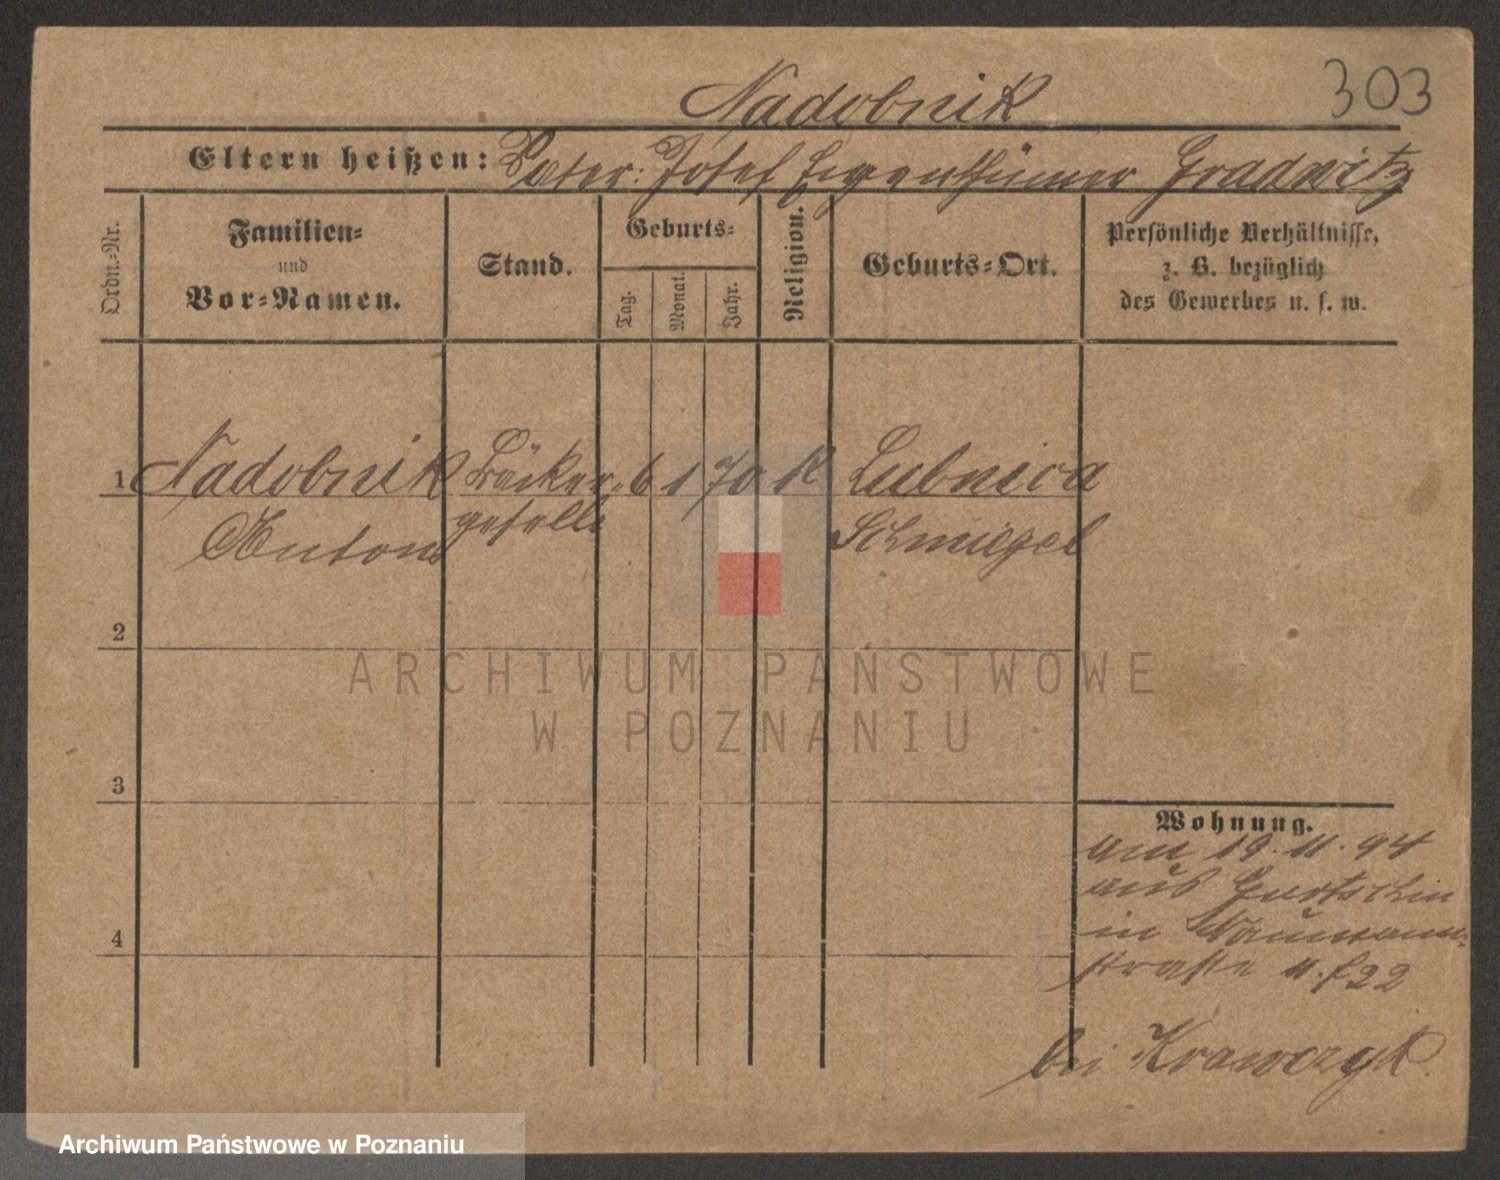 Nadobnik
303
Eltern heißen: Vater: Josef Eigenthümer Gradwitz
Ordn.-Nr.
Familien-
und
Vor-Namen.
Stand.
Geburts-
Tag.
Monat.
Jahr.
Religion.
Geburts-Ort.
Persönliche Verhältnisse,
z. B. bezüglich
des Gewerbes u. s. w.
1 Nadobnik Bäcker- 6 1 70 K Lubnica
Anton geselle Schmiegel
2
3
4
Wohnung.
am 19. 11. 94
aus
in Naumann-
straße 22
bei Krawczyk.
ARCHIWUM PAŃSTWOWE
W POZNANIU
Archiwum Państwowe w Poznaniu